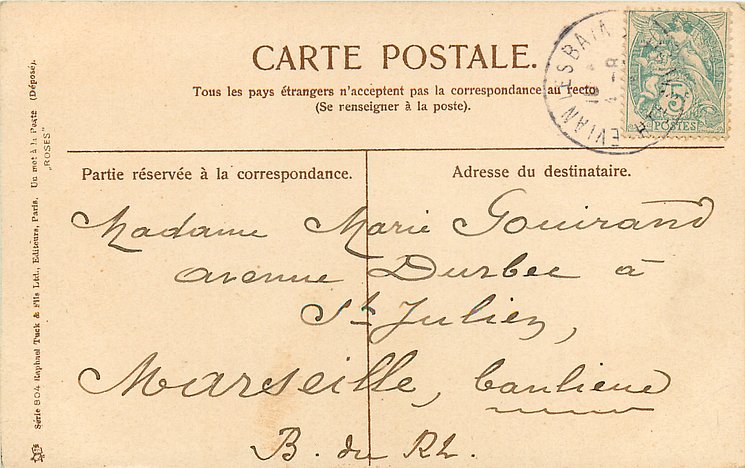 CARTE POSTALE.
Tous les pays étrangers n'acceptent pas la correspondance au recto
(Se renseigner à la poste).
Partie réservée à la correspondance.
Adresse du destinataire.
Madame Marie Gouirand
avenue Durbec à
St Julien,
Marseille, banlieue
B. du Rh.
Série 804 Raphael Tuck & Fils Ltd., Editeurs, Paris. Un mot à la Poste (Déposé).
„ROSES"
EVIAN LES BAIN
5c
POSTES